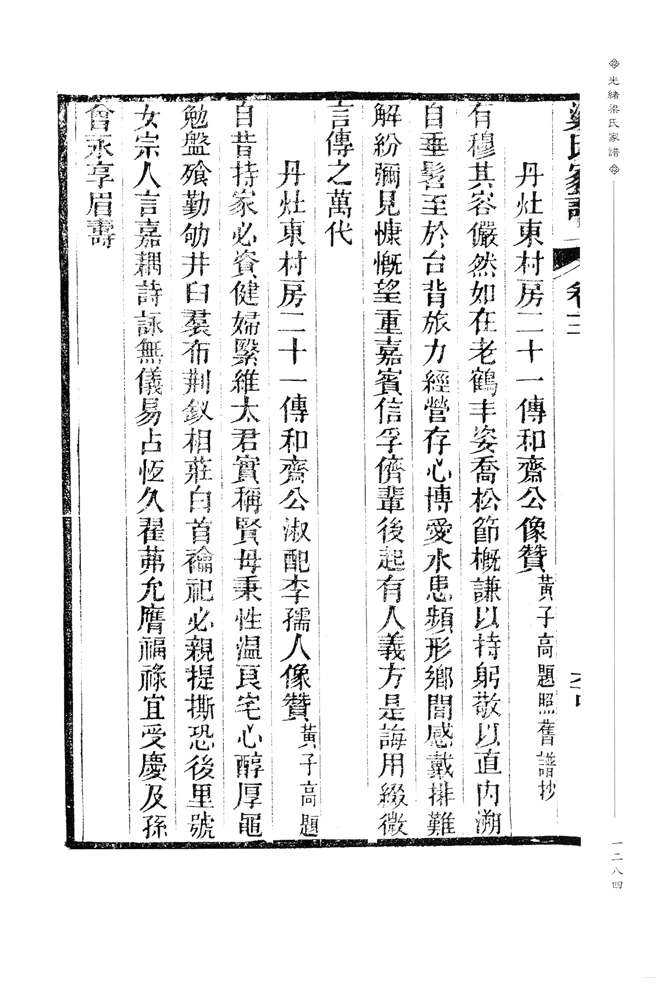 光緒梁氏家譜
一二八四
梁氏家譜 卷十三
丹灶東村房二十一傳和齋公像贊 黃子高題照舊譜抄
有穆其容儼然如在老鶴丰姿喬松節概謙以持躬敬以直內溯
自垂髫至於台背旅力經營存心博愛水患頻形鄉閭感戴排難
解紛彌見慷慨望重嘉賓信孚儕輩後起有人義方是誨用綴微
言傳之萬代
丹灶東村房二十一傳和齋公淑配李孺人像贊 黃子高題
自昔持家必資健婦緊維太君實稱賢母秉性溫良宅心醇厚黽
勉盤飧勤劬井臼羣布荆釵相莊白首禴祀必親提撕恐後里號
女宗人言嘉耦詩詠無儀易占恆久翟茀允膺福祿宜受慶及孫
曾永享眉壽